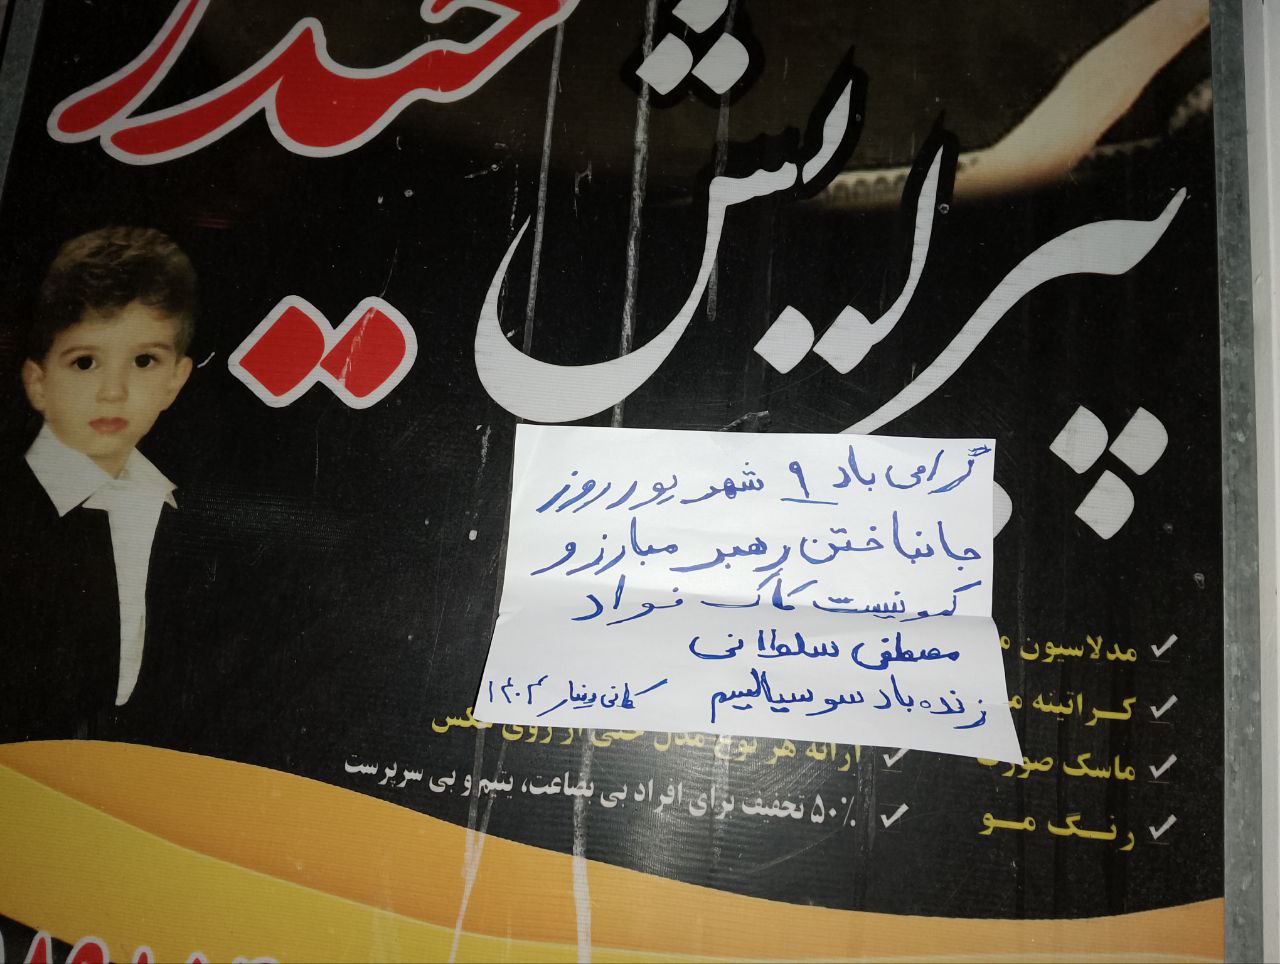 پیرایش
گرامی باد ۹ شهریور روز
جانباختن رهبر مبارز و
کمونیست کاک فواد
مصطفی سلطانی
زنده باد سوسیالیسم
کانی دینار ۱۴۰۴
مدلاسیون
کراتینه
ماسک صورت
رنگ مو
ارائه هر نوع مدل حتی از روی عکس
۵۰٪ تخفیف برای افراد بی بضاعت، یتیم و بی سرپرست